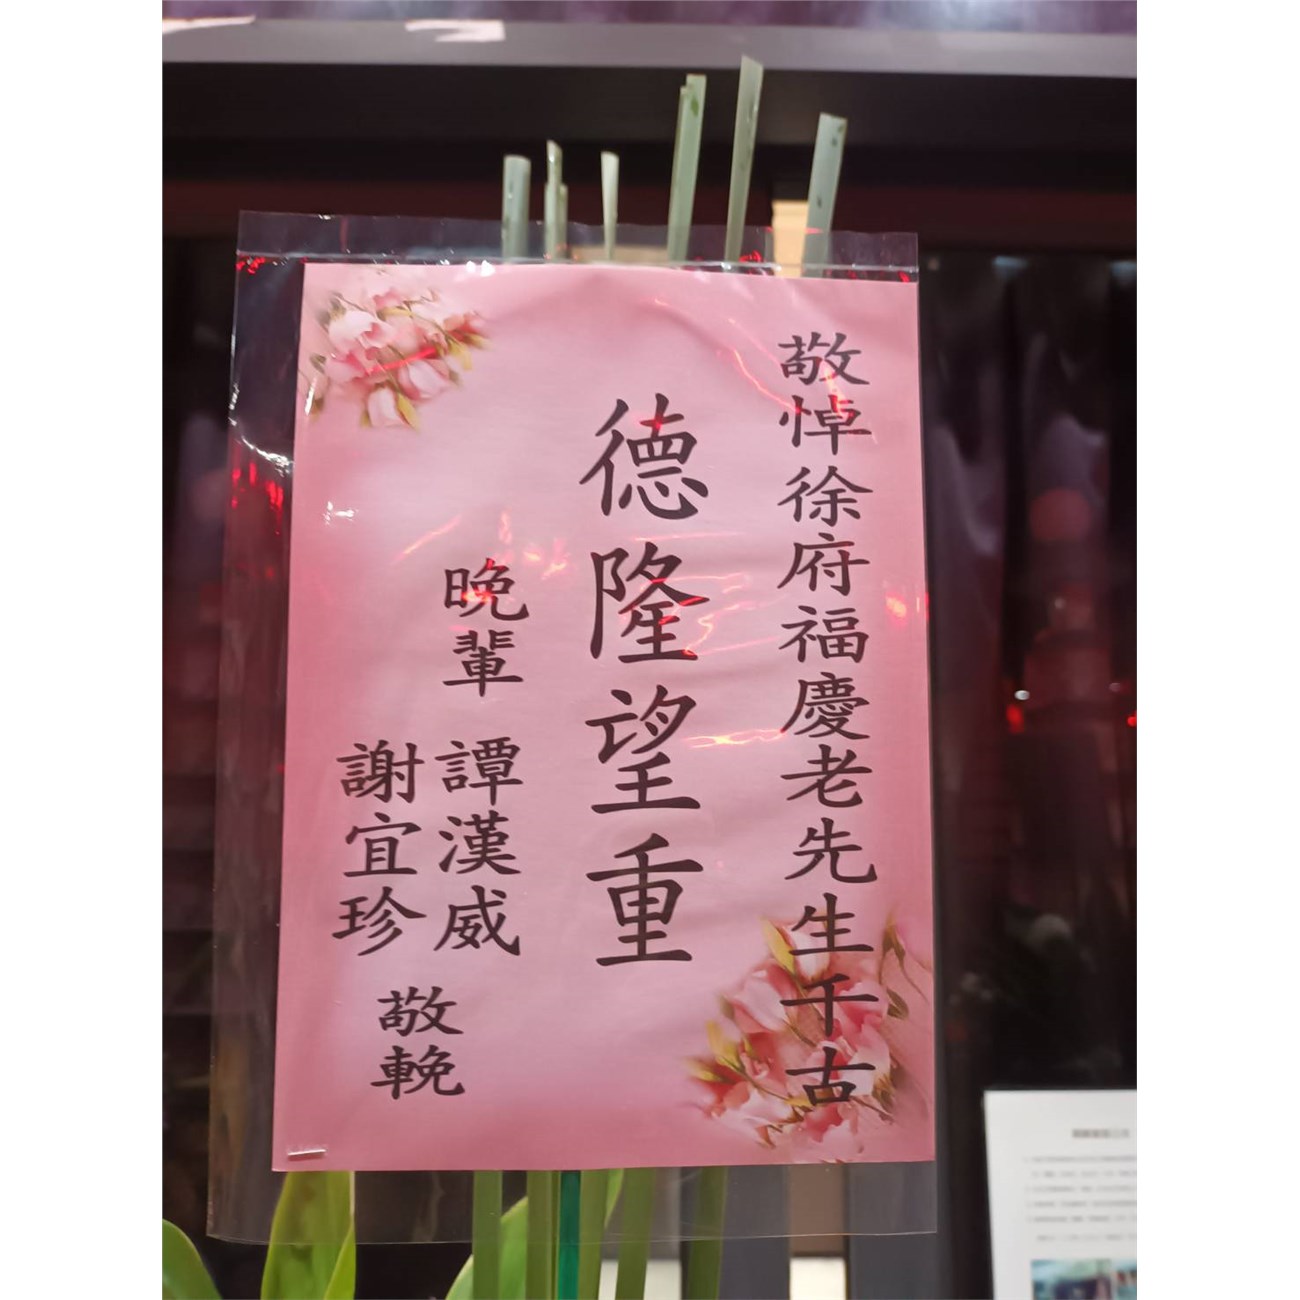 敬悼徐府福慶老先生千古
德隆望重
晚輩
譚漢威
謝宜珍
敬輓